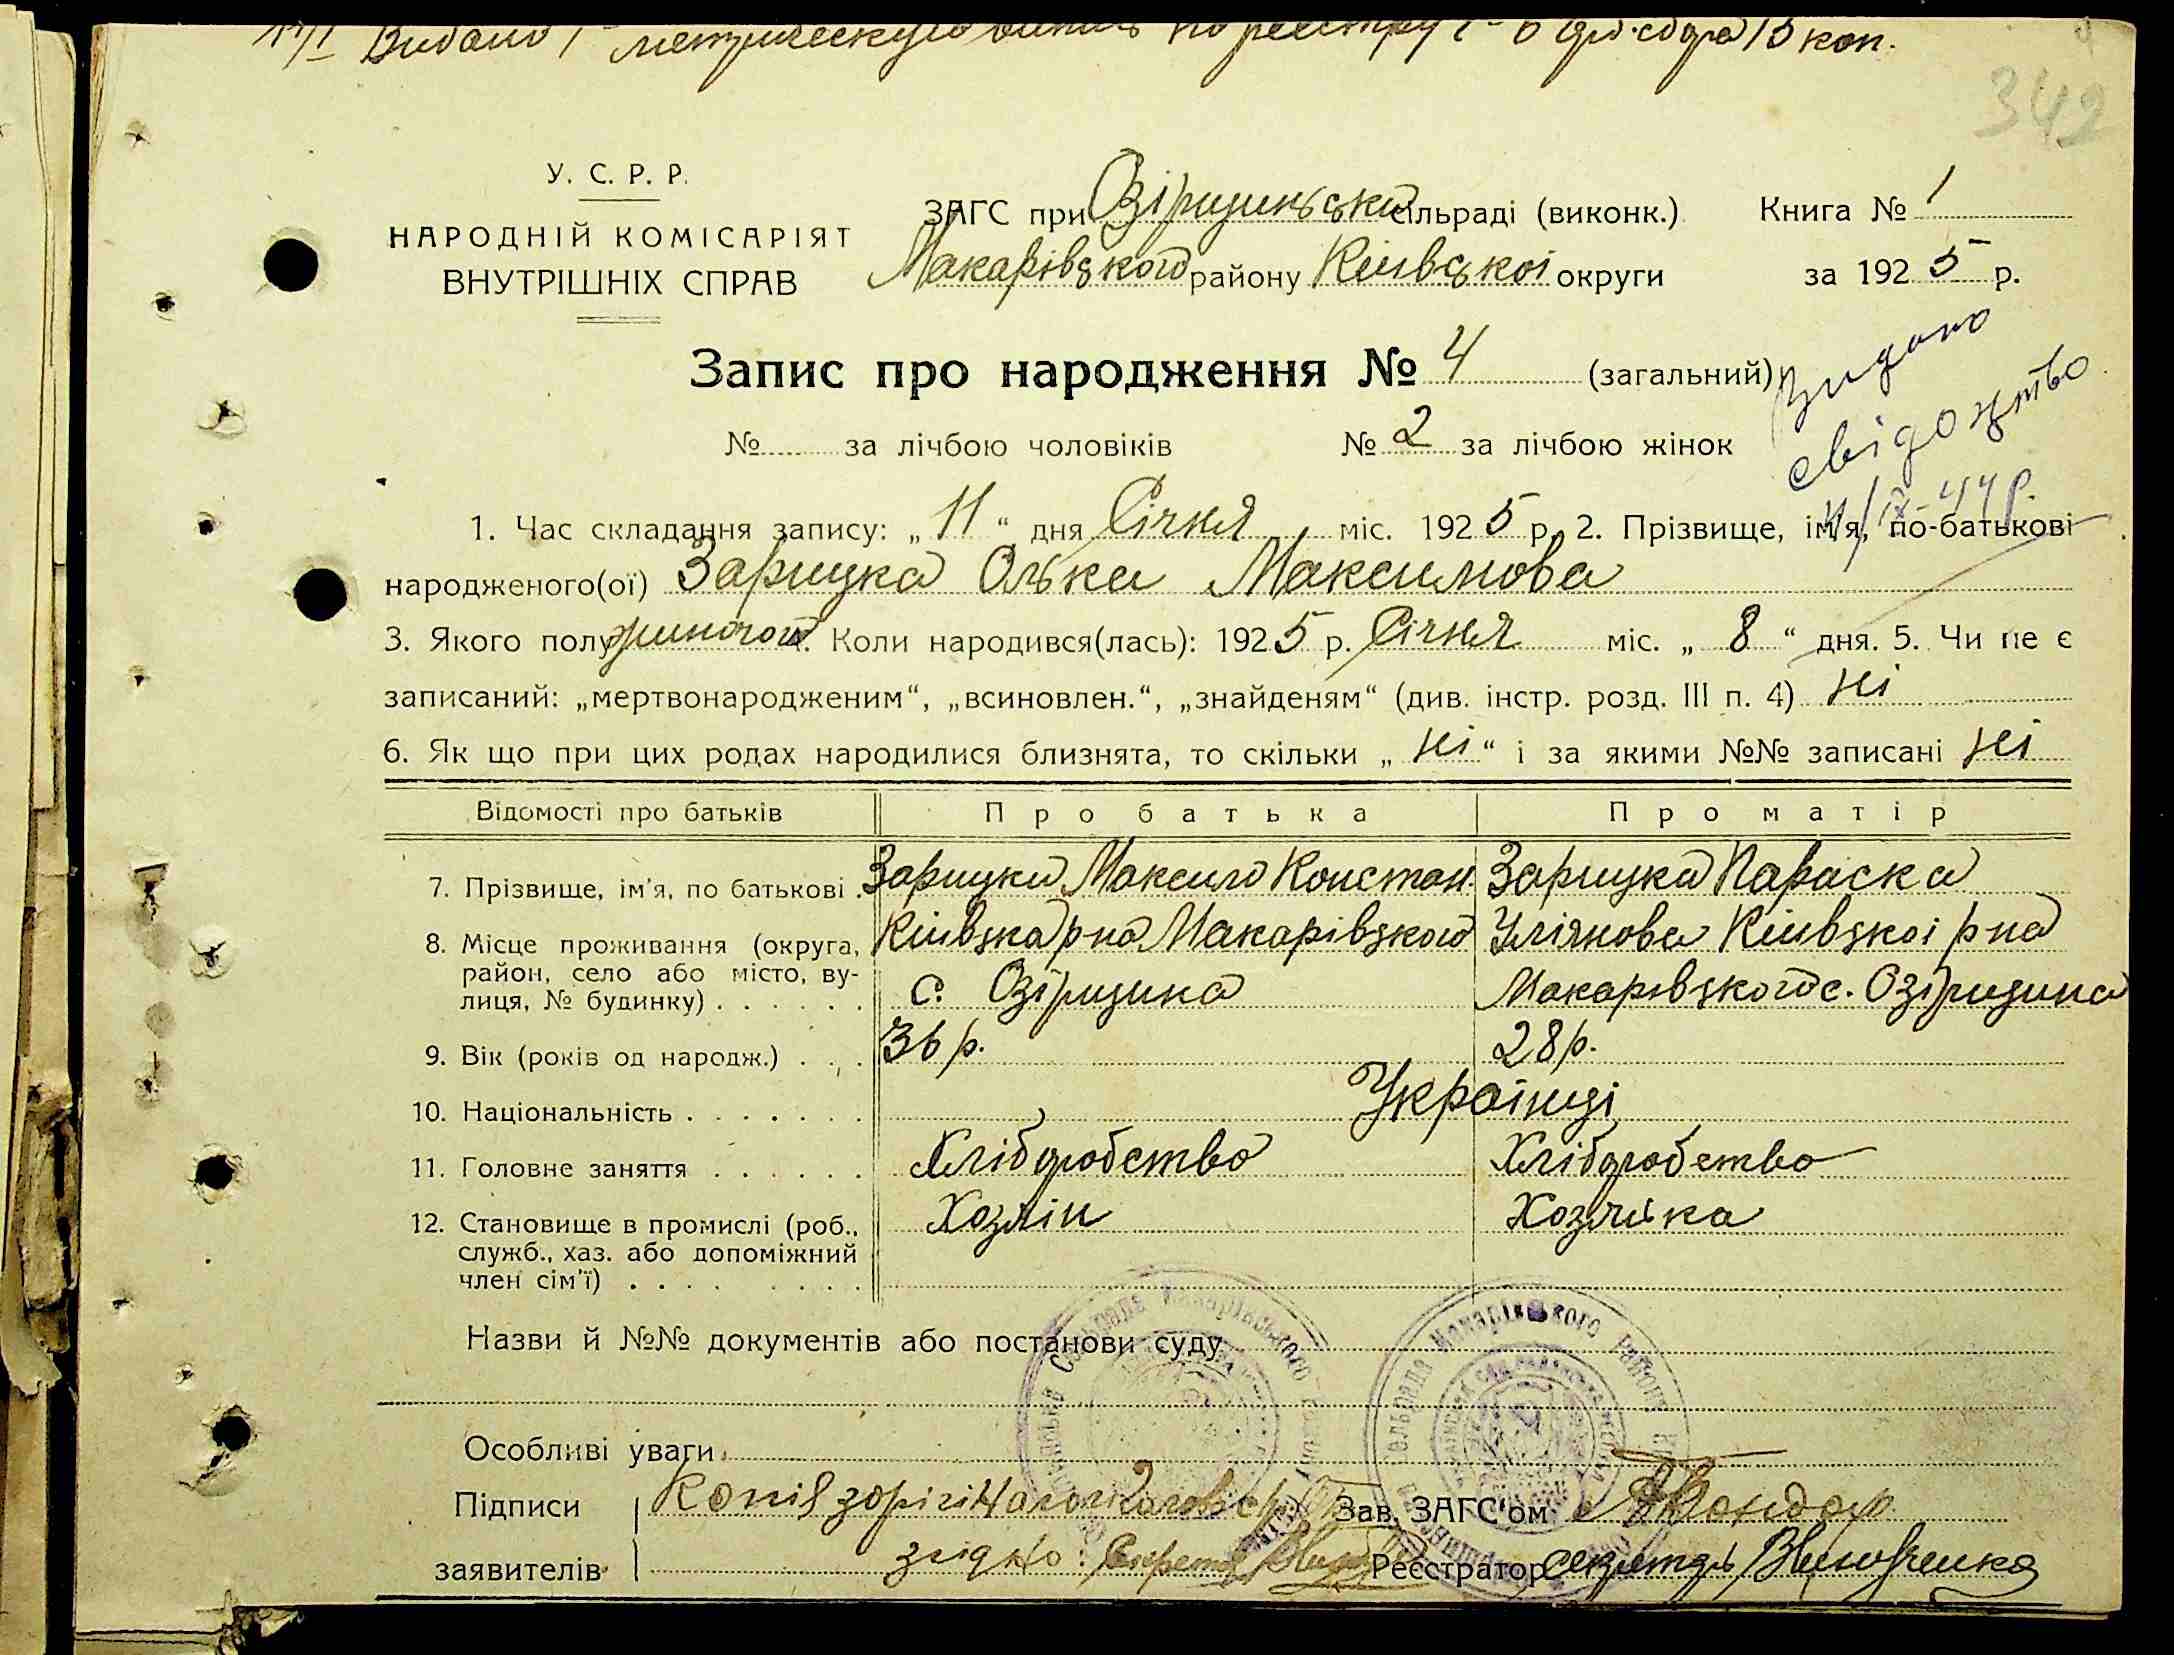 Видано метрическую по реестру 15 коп.
342
У. С. Р. Р.
НАРОДНІЙ КОМІСАРІЯТ
ВНУТРІШНІХ СПРАВ
ЗАГС при Озірщинський сільраді (виконк.)
Книга № 1
Макарівского району Київської округи
за 1925 р.
Запис про народження № 4 (загальний)
Видано
свідоцтво
№ за лічбою чоловіків № 2 за лічбою жінок
1. Час складання запису: „ 11 “ дня Січня міс. 1925 р. 2. Прізвище, ім'я, по-батькові
народженого(ої) Зарицка Олька Максимова
3. Якого полу жиночого Коли народився(лась): 1925 р. Січня міс. „ 8 “ дня. 5. Чи не є
записаний: „мертвонародженим“, „всиновлен.“, „знайденям“ (див. інстр. розд. III п. 4) Ні
6. Як що при цих родах народилися близнята, то скільки „ Ні “ і за якими №№ записані Ні
Відомості про батьків Про батька Про матір
7. Прізвище, ім'я, по батькові . Зарицки Максим Констан. Зарицка Параска
8. Місце проживання (округа, Київска р-на Макарівского Улянова Київскої р-на
район, село або місто, ву- с. Озірщина Макарівского с. Озірщина
лиця, № будинку) . . . . . .
9. Вік (років од народж.) . . . 36 р. 28 р.
10. Національність . . . . . . . Українці
11. Головне заняття . . . . . . Хліборобство Хліборобство
12. Становище в промислі (роб., Хозяїн Хозяйка
служб., хаз. або допоміжний
член сім'ї) . . . . . . . . .
Назви й №№ документів або постанови суду
Особливі уваги
Підписи Копія з орігіналом Зав. ЗАГС'ом Бондар
заявителів згідно: Секретар Реєстратор секретарь